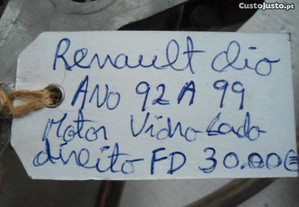 CustoJusto.pt
Renault clio
ANO 92 A 99
Motor Vidro Lado
direito FD 30.00€